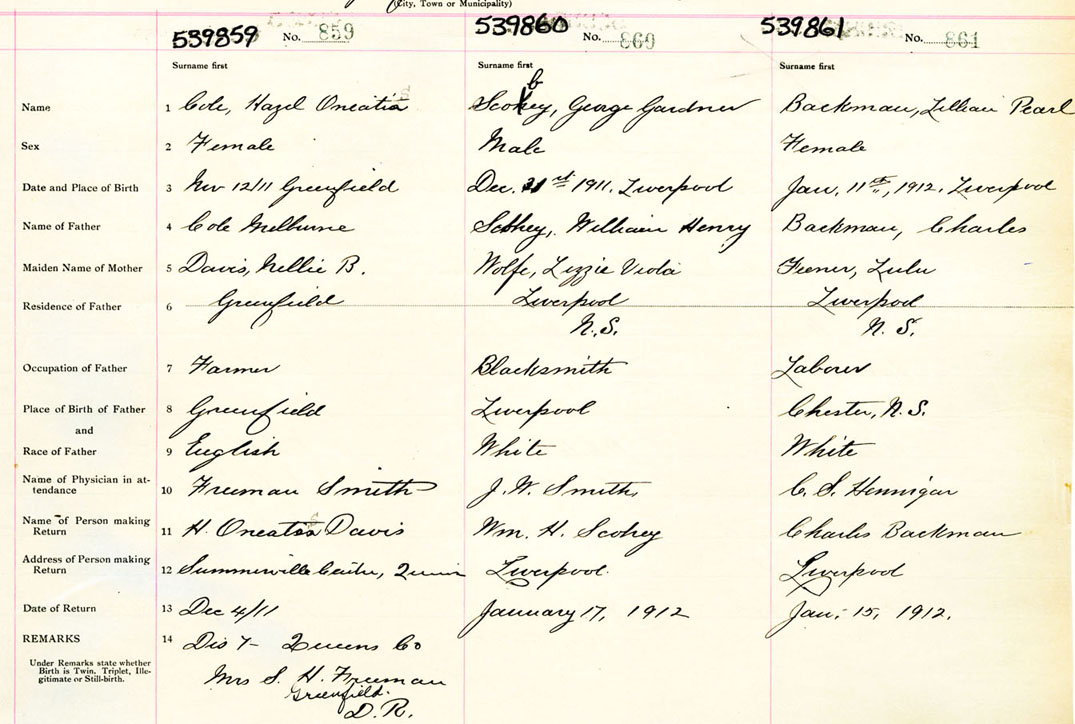 (City, Town or Municipality)
539859 No. 859 539860 No. 860 539861 No. 861
Surname first Surname first Surname first
b
Name 1 Cole, Hazel Oneatia Scohey, George Gardner Backman, Lillian Pearl
Sex 2 Female Male Female
Date and Place of Birth 3 Nov 12/11 Greenfield Dec. 21st 1911, Liverpool Jan. 11th, 1912, Liverpool
Name of Father 4 Cole Melburne Scobey, William Henry Backman, Charles
Maiden Name of Mother 5 Davis, Nellie B. Wolfe, Lizzie Viola Feener, Lulu
Residence of Father 6 Greenfield Liverpool Liverpool
N.S. N.S.
Occupation of Father 7 Farmer Blacksmith Laborer
Place of Birth of Father 8 Greenfield Liverpool Chester, N.S.
and
Race of Father 9 English White White
Name of Physician in at-
tendance 10 Freeman Smith J. W. Smith C. S. Hennigar
Name of Person making
Return 11 H. Oneatia Davis Wm. H. Scohey Charles Backman
Address of Person making
Return 12 Summerville Centre, Liverpool. Liverpool
Date of Return 13 Dec 4/11 January 17, 1912 Jan. 15, 1912.
REMARKS 14 Dis 7- Queens Co
Under Remarks state whether
Birth is Twin, Triplet, Ille-
gitimate or Still-birth.
Mrs S. H. Freeman
Greenfield.
D.R.